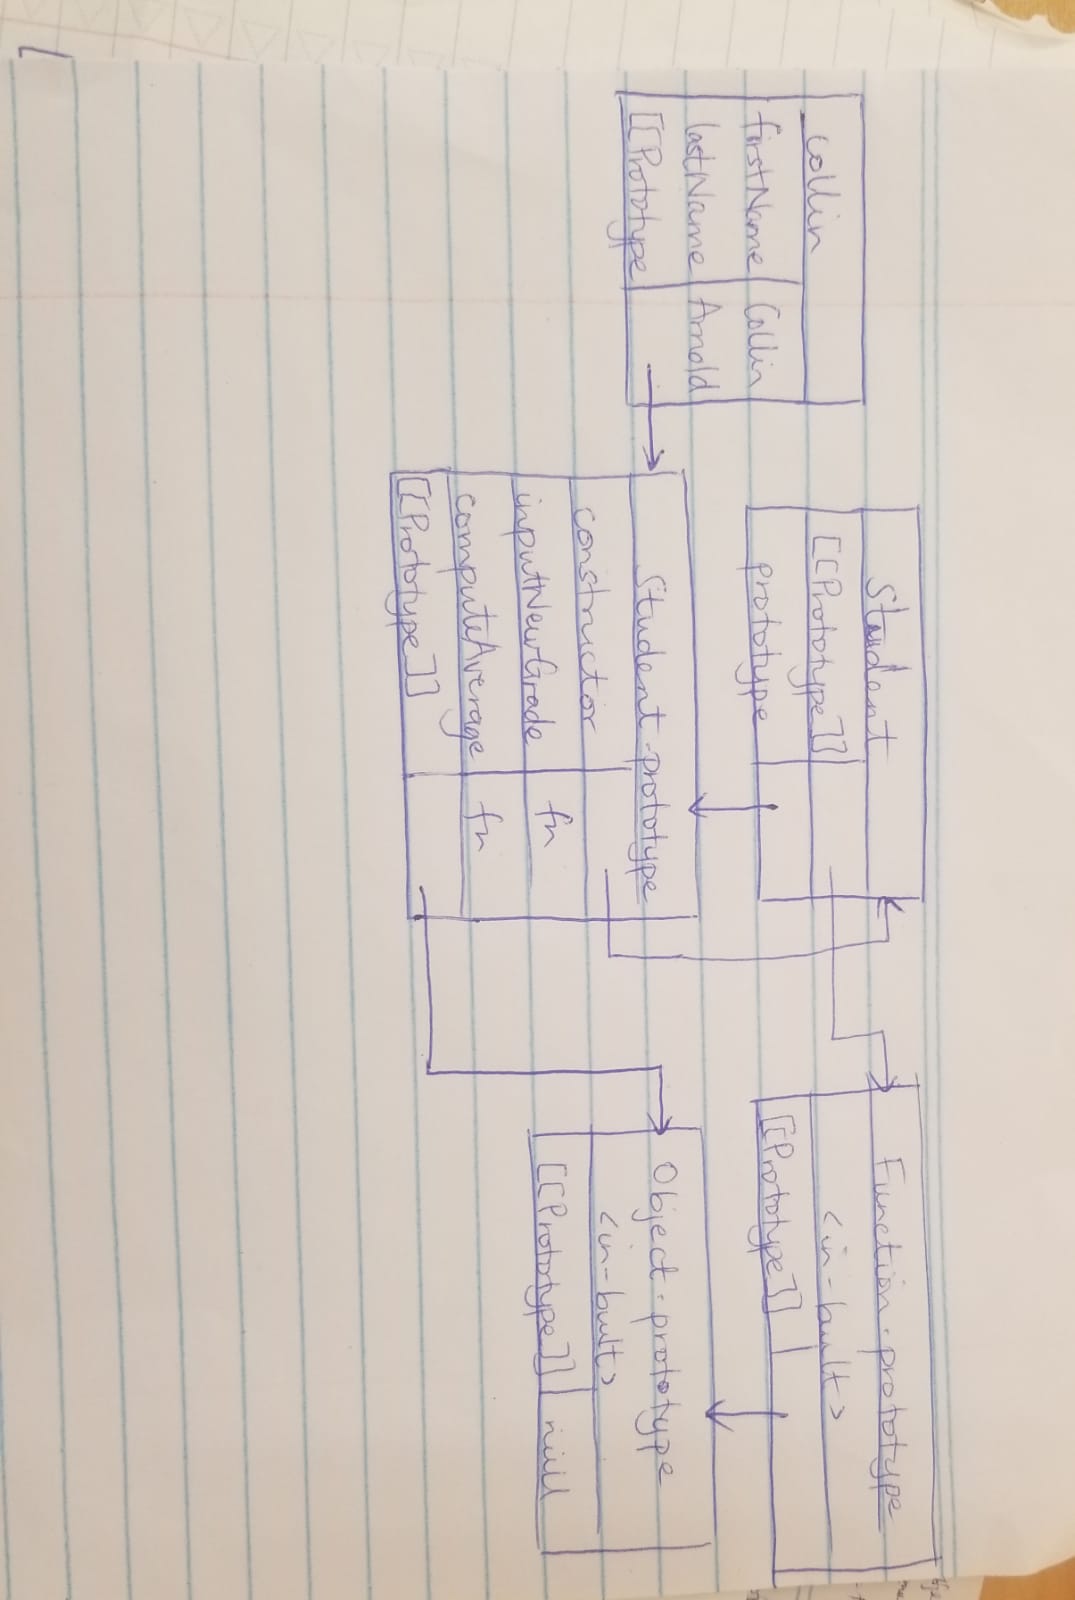 Collin
firstName Collin
lastName Arnold
[[Prototype
Student
[[Prototype]]
prototype
Student.prototype
constructor
inputNewGrade fn
computeAverage fn
[[Prototype]]
Function.prototype
<in-built>
[[Prototype]]
Object.prototype
<in-built>
[[Prototype]] null